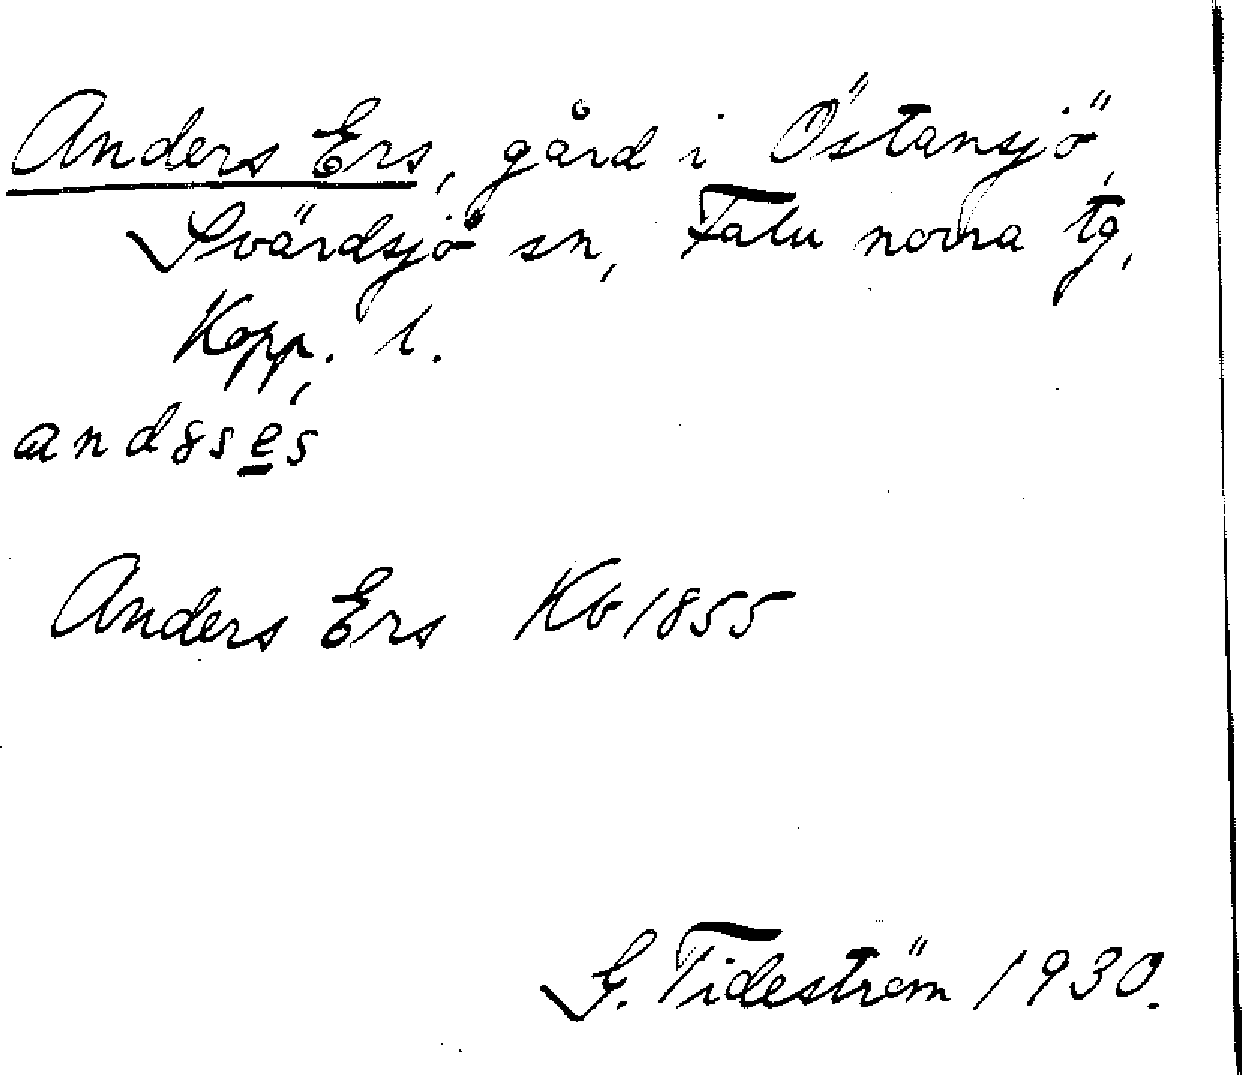 Anders Ers, gård i Östansjö,
Svärdsjö sn, Falu norra tg,
Kopp. l.
and8sés
Anders Ers Kb 1855
G. Tideström 1930.